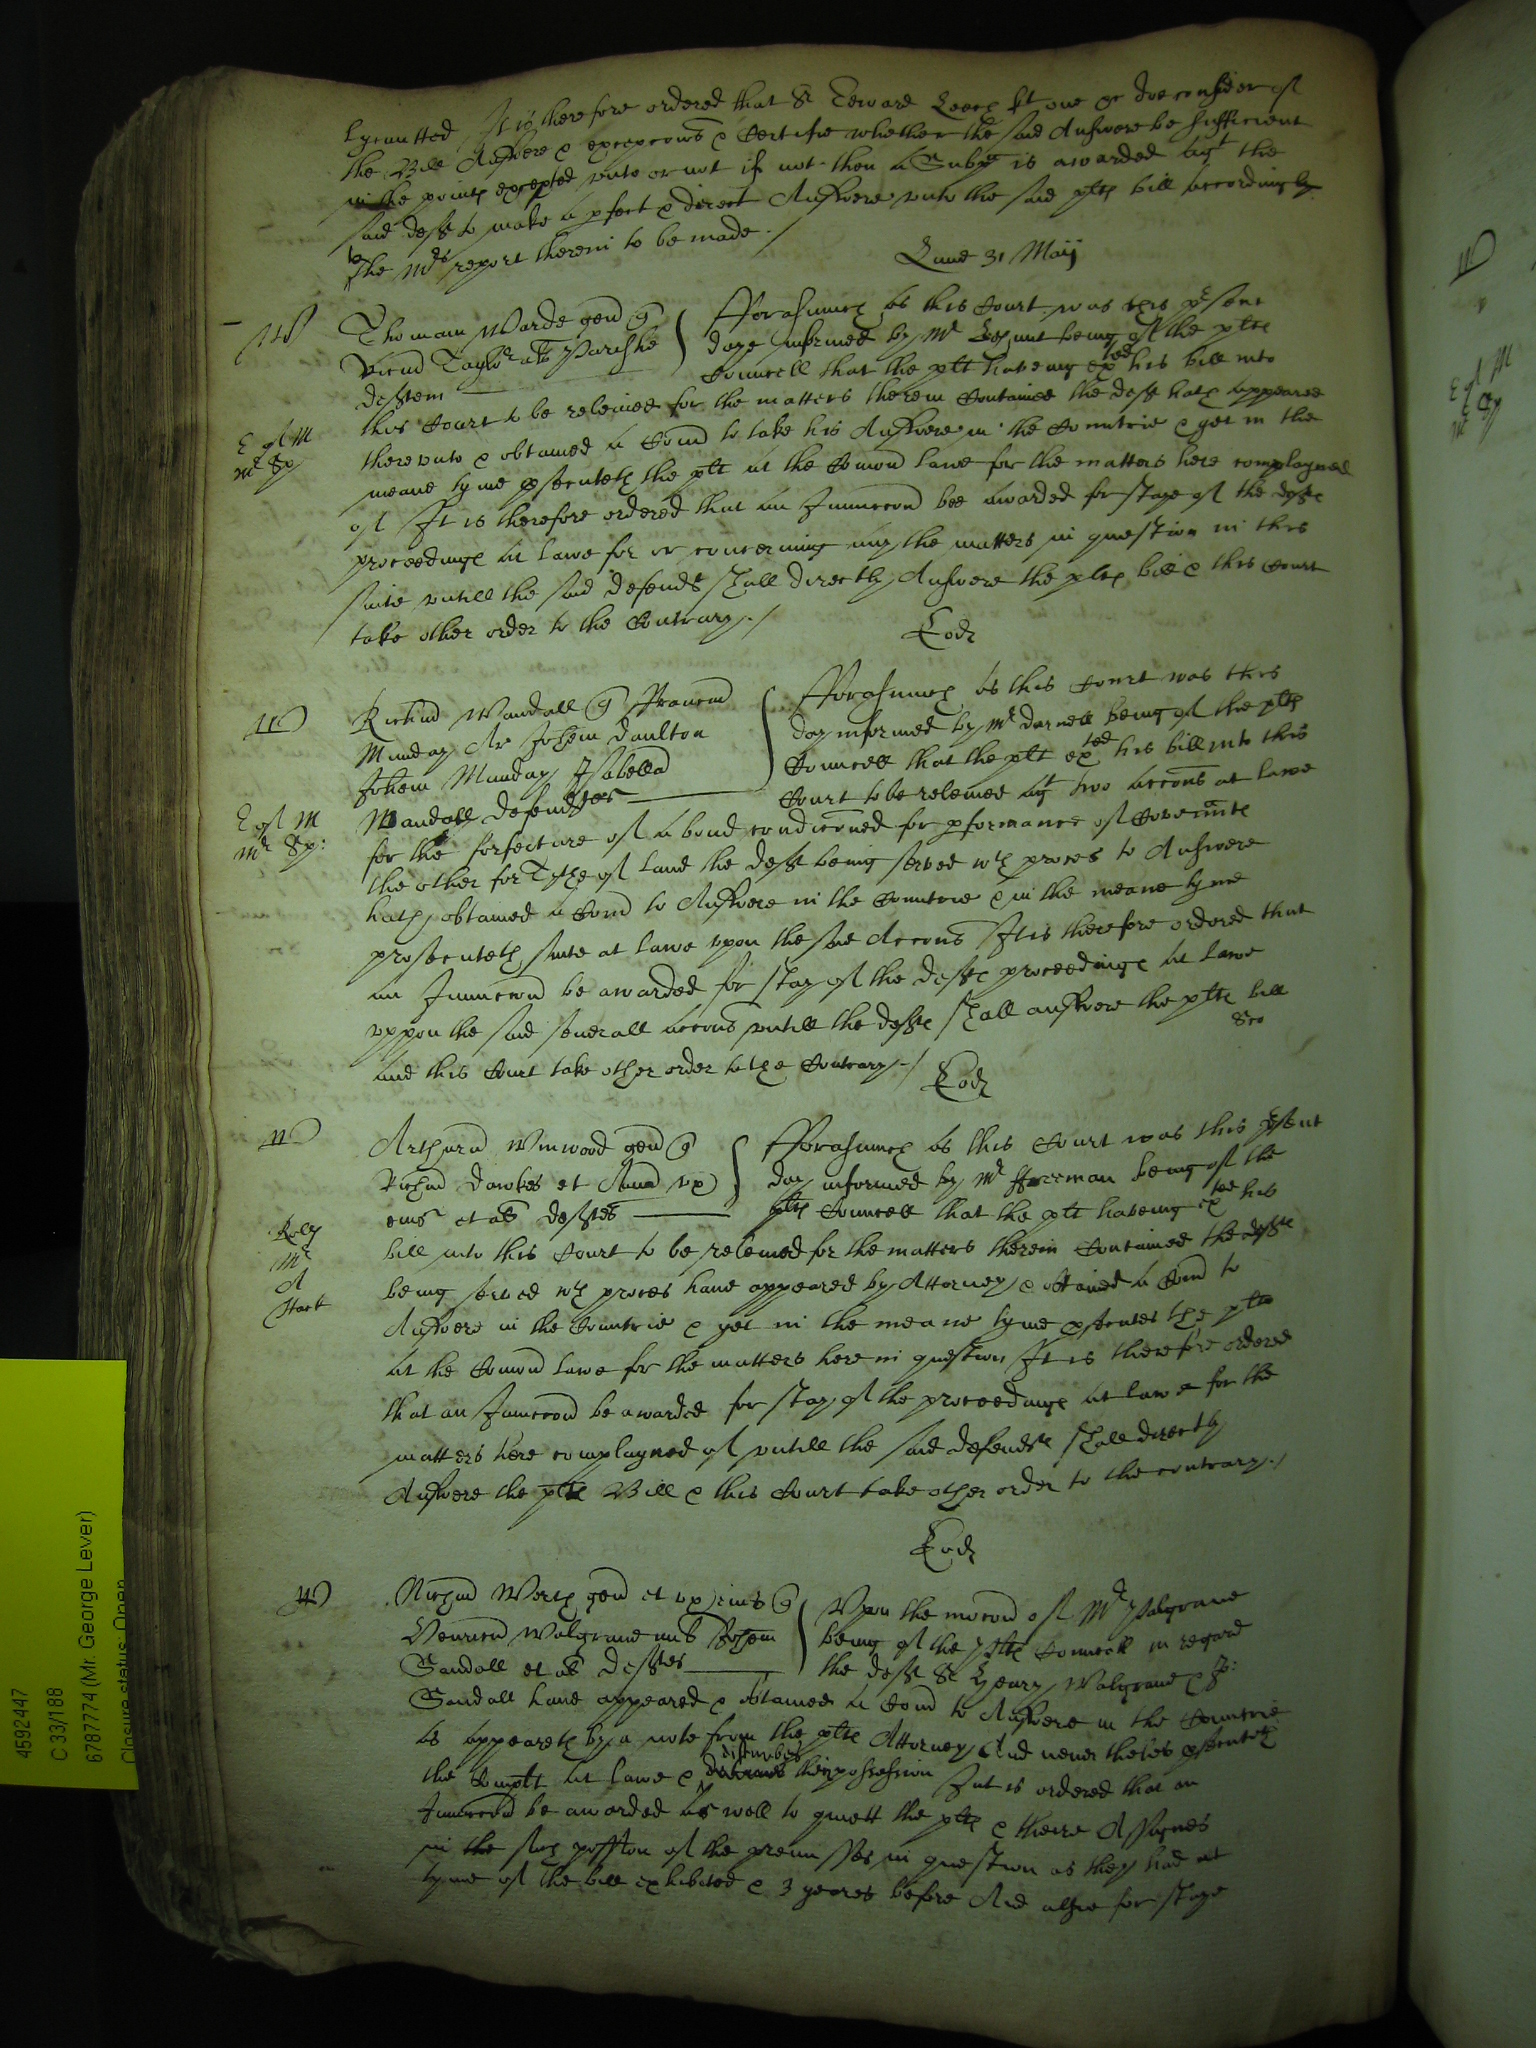 It is therefore ordered that Sr Edward Leech kt one &c doe consider of
the Bill Answere & excepcons & Certifie whether the said Answere be sufficient
in the points excepted unto or not if not then a Subp is awarded agt the
said deft to make a pfect & direct Answere unto the said plts bill accordingly
the Mrs report therein to be made ./
Lune 31 Maij
W
Thomam Warde gen q
Forasmuch as this Court was this psent
Ricum Taylor als Parishe
daye informed by Mr being of the plts
deftem
Councell that the plt haveing exted his bill into
this Court to be releived for the matters therein Contained the deft hath appeared
E of M
thereunto & obtained a Com to take his Answere in the Countrie & yet in the
Mr Sp
meane tyme psecuteth the plt at the Comon lawe for the matters here complayned
of It is therefore ordered that an Iniunccon bee awarded for staye of the defts
proceedings at lawe for or concerning any the matters in question in this
suite untill the said defendt shall directly Answere the plts bill & this Court
take other order to the Contrary ./
Eod
W
Richum Wandall q Francum
Forasmuch as this Court was this
Munday Ar Johem Daulton
day informed by Mr Darnell being of the plts
Johem Munday Isabella
Councell that the plt exted his bill into this
Wandall defendtes
Court to be releived agt two accons at lawe
E of M
for the forfecture of a bond condiconed for pformance of Covennts
Mr Sp:
the other for Tythe of land the deft being served wth proces to Answere
hath obtained a Com to Answere in the Countrie & in the meane tyme
prosecuteth suite at lawe upon the said Accons It is therefore ordered that
an Iniunccon be awarded for stay of the defts proceedings at lawe
uppon the said severall accons untill the defts shall answere the plts bill
and this Court take other order to the Contrary ./
Eod
W
Arthurum Winwood gen q
Forasmuch as this Court was this psent
Richum Dawkes et Anna ux
day informed by Mr Herman being of the
eius et al deftes
plts Councell that the plt haveing exted his
Rolls
bill into this Court to be releived for the matters therein Contained the defts
Mr
being served wth proces have appeared by Attorney & obtained a Com to
A
Hart
Answere in the Countrie & yet in the meane tyme psecutes the plts
at the Comon lawe for the matters here in question It is therefore ordered
that an Iniunccon be awarded for stay of the proceedings at lawe for the
matters here complayned of untill the said defendts shall directly
Answere the plts Bill & this Court take other order to the contrary ./
Eod
W
Richum Worth gen et ux eius q
Upon the mocon of Mr Palgrave
Henricum Walgrave mil Johem
being of the Plts Councell in regard
Sandall et al deftes
the deft Sr Henry Walgrave & Jo:
Sandall have appeared & obtained a Com to Answere in the Countrie
as appeareth by a note from the plts Attorney And nevertheles psecuteth
the Complt at lawe & disturbes their possession It is ordered that an
Iniunccon be awarded as well to quiett the plts & theire Assignes
in the such possion of the premisses in question as they had at
tyme of the bill exhibited & 3 yeares before And alsoe for staye
4592447
C 33/188
6787774 (Mr. George Lever)
Closure status: Open
W
E of M
Mr Sp